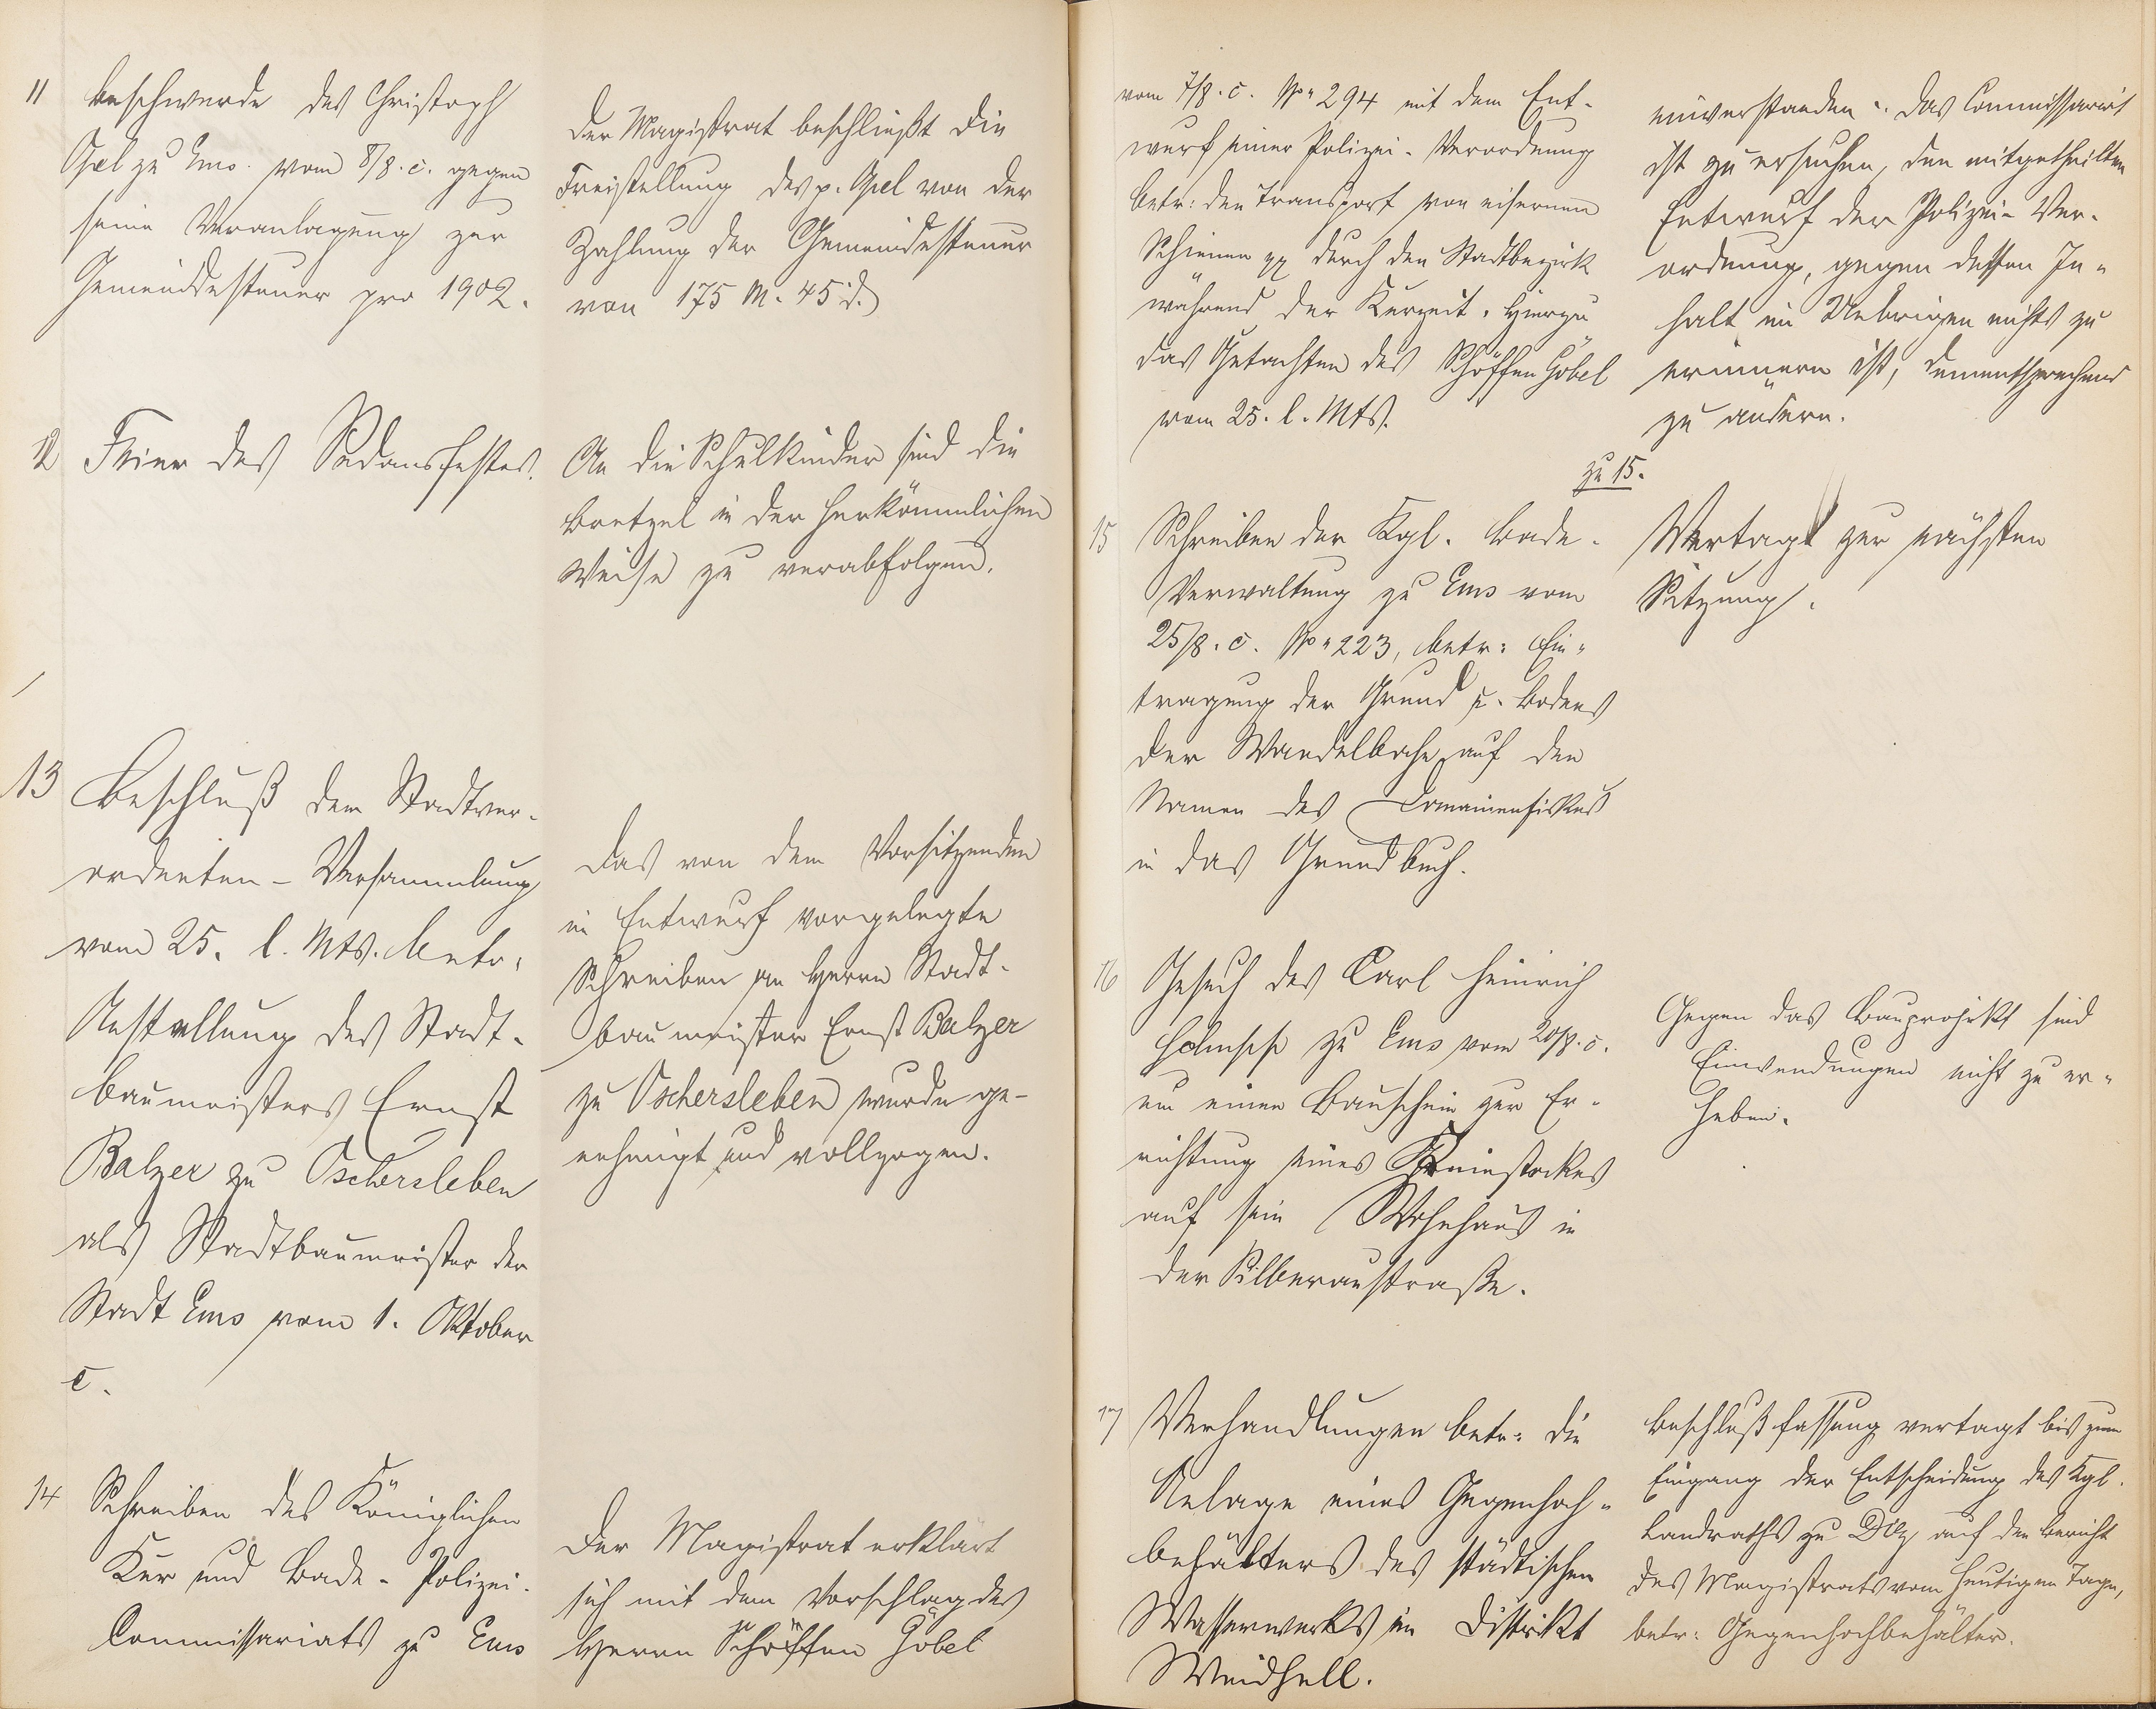 11 Beschwerde des Christoph
Gel zu Ems vom 8/8. c. gegen
seine Veranlagung zur
Gemeindesteuer pro 1902.
Der Magistrat beschließt die
Freistellung des p. Gel von der
Zahlung der Gemeindesteuer
von 175 M. 45 d.
12 Feier des Sedansfestes.
An die Schulkinder sind die
Bretzel in der herkömmlichen
Weise zu verabfolgen.
13 Beschluß der Stadtver-
ordneten-Versammlung
vom 25. l. Mts. betr.
Anstellung des Stadt-
baumeisters Ernst
Balzer zu Oschersleben
als Stadtbaumeister der
Stadt Ems vom 1. Oktober
c.
Das von dem Vorsitzenden
in Entwurf vorgelegte
Schreiben an Herrn Stadt-
baumeister Ernst Balzer
zu Oschersleben wurde ge-
nehmigt und vollzogen.
14 Schreiben des Königlichen
Kur und Bade-Polizei-
Commissariats zu Ems
Der Magistrat erklärt
sich mit dem Vorschlag des
Herrn Schöffen Göbel
vom 7/8. c. No 294 mit dem Ent-
wurf einer Polizei-Verordnung
betr: den Transport von eisernen
Schienen pp durch den Stadtbezirk
während der Kurzeit. Hierzu
das Gutachten des Schöffen Göbel
vom 25. l. Mts.
einverstanden. Das Commissariat
ist zu ersuchen, den mitgetheilten
Entwurf der Polizei-Ver-
ordnung, gegen dessen In-
halt im Uebrigen nichts zu
erinnern ist, dementsprechend
zu ändern.
zu 15.
15 Schreiben der Kgl. Bade-
Verwaltung zu Ems vom
25/8. c. No 223, betr: Ein-
tragung der Grund u. Bodens
der Wandelbahn auf den
Namen des Domainenfiskus
in das Grundbuch.
Vertagt zur nächsten
Sitzung.
16 Gesuch des Carl Heinrich
zu Ems vom 20/8. c.
um einen Bauschein zur Er-
richtung eines Kniestockes
auf sein Wohnhaus in
der Silberaustraße.
Gegen das Bauprojekt sind
Einwendungen nicht zu er-
heben.
17 Verhandlungen betr: die
Anlage eines Gegenhoch-
behälters des städtischen
Wasserwerks im Distrikt
Weidhell.
Beschlußfassung vertagt bis zum
Eingang der Entscheidung des Kgl.
Landraths zu Diez auf den Bericht
des Magistrats vom heutigen Tage,
betr: Gegenhochbehälter.